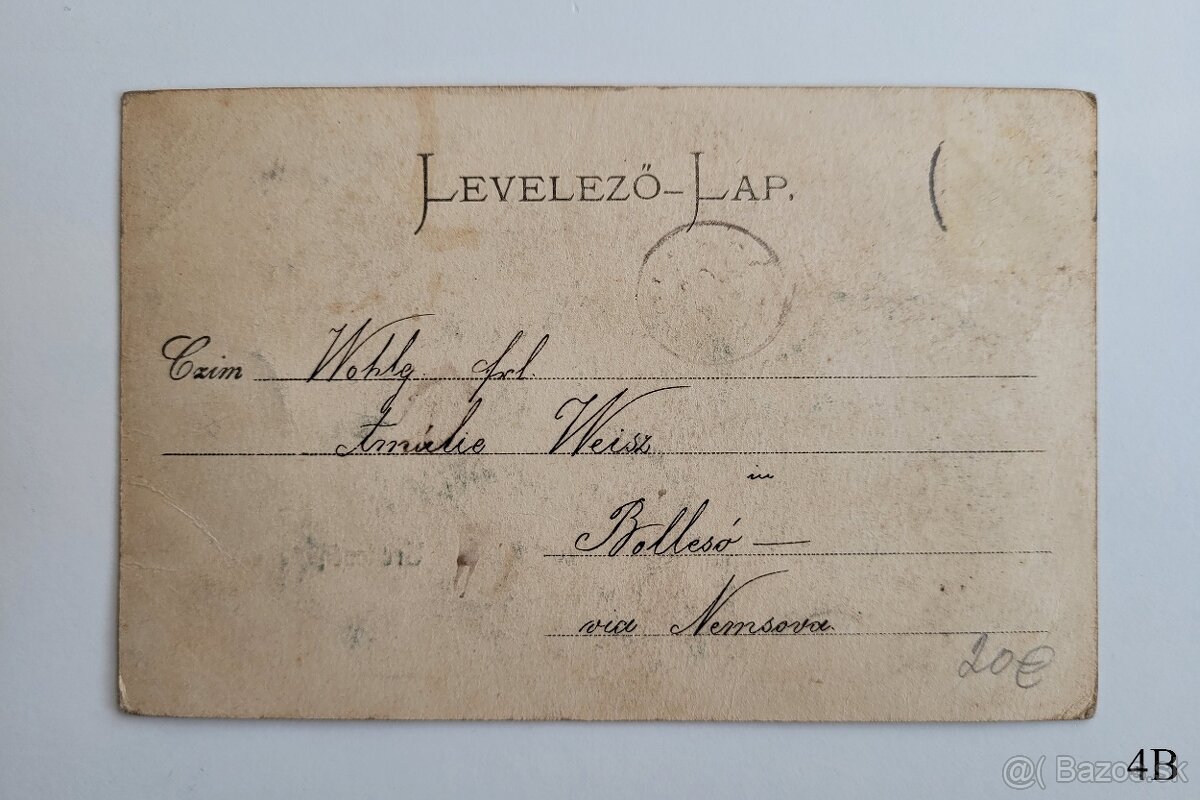 LEVELEZŐ-LAP.
Czim Wohlg. frl.
Amálie Weisz
in
Bollcsó —
via Nemsova.
20€
4B
@( Bazos.sk